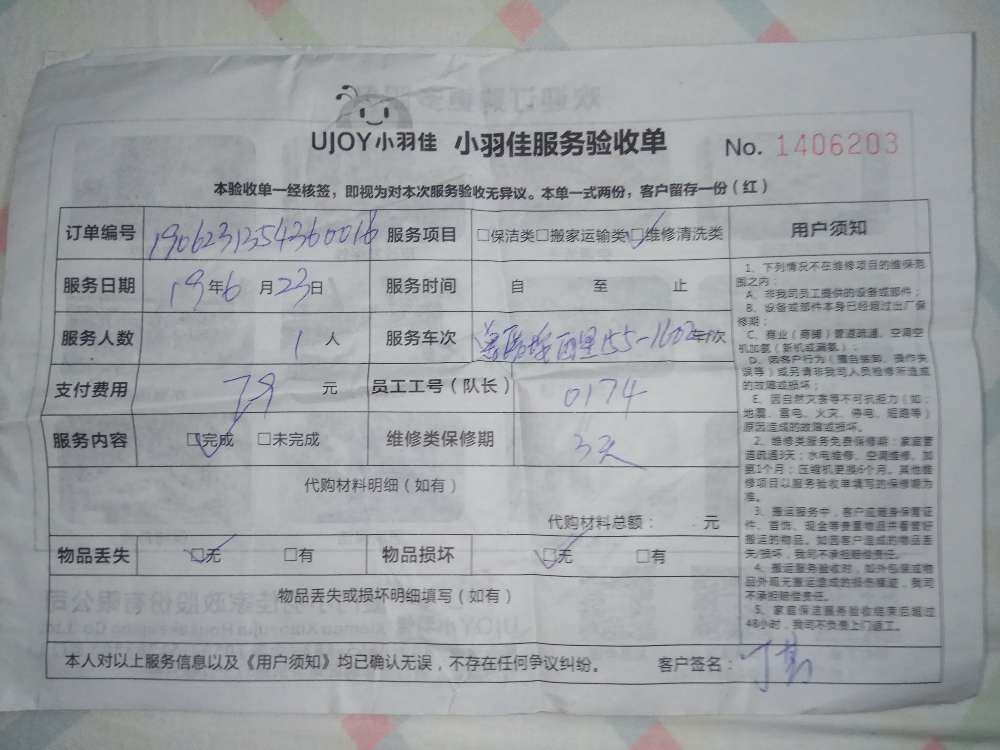 UJOY小羽佳 小羽佳服务验收单 No. 1406203
本验收单一经核签，即视为对本次服务验收无异议。本单一式两份，客户留存一份（红）
订单编号 1906231354360016 服务项目 □保洁类□搬家运输类□维修清洗类 用户须知
服务日期 19年6月23日 服务时间 自 至 止
服务人数 1人 服务车次 西里55-1602 车/次
支付费用 79 元 员工工号（队长） 0174
服务内容 □完成 □未完成 维修类保修期 3天
代购材料明细（如有）
代购材料总额： 元
物品丢失 □无 □有 物品损坏 □无 □有
物品丢失或损坏明细填写（如有）
本人对以上服务信息以及《用户须知》均已确认无误，不存在任何争议纠纷。 客户签名：
1、下列情况不在维修项目的维保范
围之内：
A、非我司员工提供的设备或部件；
B、设备或部件本身已经超过出厂保
修期；
C、商业（商铺）管道疏通、空调空
机加氨（新机或漏氨）；
D、因客户行为（擅自装卸、操作失
误等）或另请非我司人员检修所造成
的故障或损坏；
E、因自然灾害等不可抗拒力（如：
地震、雷电、火灾、停电、短路等）
原因造成的故障或损坏。
2、维修类服务免费保修期：家庭管
道疏通3天；水电维修、空调维修、加
氨1个月；压缩机更换6个月。其他维
修项目以服务验收单填写的保修期为
准。
3、搬运服务中，客户应随身保管证
件、首饰、现金等贵重物品并看管好
搬运的物品。如因客户造成的物品丢
失/损坏，我司不承担赔偿责任。
4、搬运服务验收时，如外包装或物
品外观无搬运造成的损伤痕迹，我司
不承担赔偿责任。
5、家庭保洁服务验收结束后超过
48小时，我司不负责上门返工。